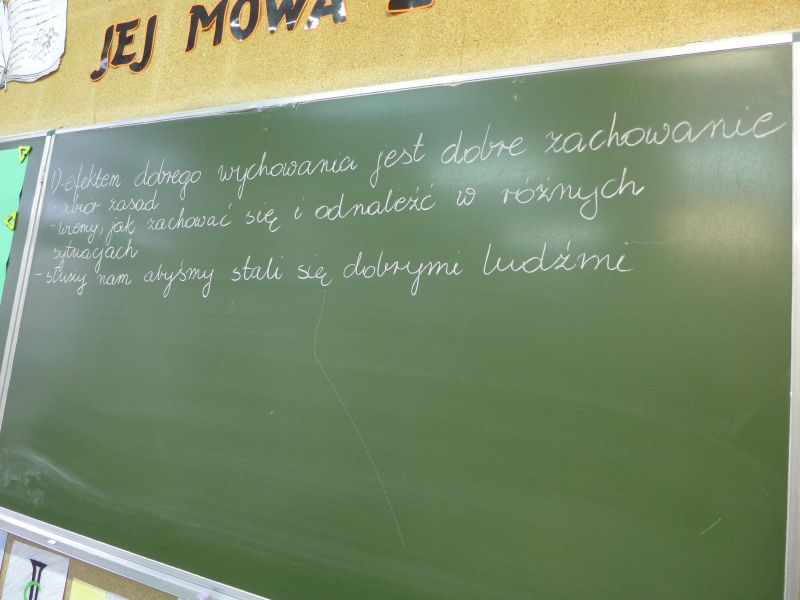 JEJ MOWA
1) efektem dobrego wychowania jest dobre zachowanie
- zbiór zasad
- wiemy, jak zachować się i odnaleźć w różnych
sytuacjach
- służy nam abyśmy stali się dobrymi ludźmi